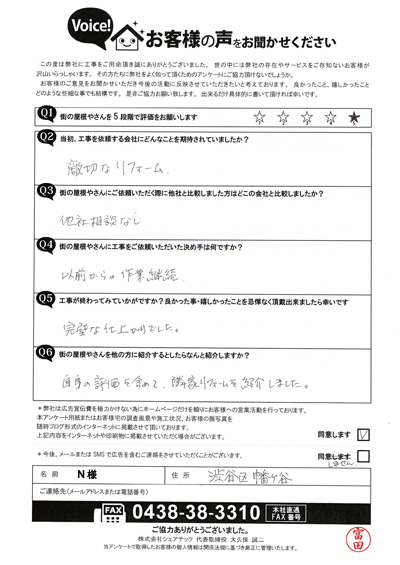 Voice!
お客様の声をお聞かせください
この度は弊社に工事をご用命頂き誠にありがとうございました。世の中には弊社の存在やサービスをご存知ないお客様が
沢山いらっしゃいます。その方たちに弊社をよく知って頂くためのアンケートにご協力頂けないでしょうか。
お客様のご意見をお聞かせいただき今後の活動に反映させていただきたいと考えております。良かったこと、嬉しかったこと
どのような些細な事でも結構です。是非ご協力お願い致します。出来るだけ具体的に書いて頂ければ幸いです。
Q1 街の屋根やさんを5段階で評価をお願いします
Q2 当初、工事を依頼する会社にどんなことを期待されていましたか?
適切なリフォーム。
Q3 街の屋根やさんにご依頼いただく際に他社と比較しました方はどこの会社と比較しましたか?
他社相談なし
Q4 街の屋根やさんに工事をご依頼いただいた決め手は何ですか?
以前からの作業継続
Q5 工事が終わってみていかがですか?良かった事・嬉しかったことを忌憚なく頂戴出来ましたら幸いです
完璧な仕上がりでした。
Q6 街の屋根やさんを他の方に紹介するとしたらなんと紹介しますか?
自身の評価を含めて、リフォームを紹介しました。
*弊社は広告宣伝費を極力かけない為にホームページだけを頼りにお客様への営業活動を行っております。
本アンケート用紙またはお客様宅の調査風景や施工状況、お客様の顔写真を
随時ブログ形式のインターネットに掲載させて頂いております。
上記内容をインターネットや印刷物に掲載させていただく場合がございます。 同意します
*今後、メールまたはSMSで広告を含むご連絡をさせていただくことがございます。 同意します
しません
名前 N様 住所 渋谷区幡ヶ谷
ご連絡先(メールアドレスまたは電話番号)
FAX 0438-38-3310 本社直通 FAX番号
ご協力ありがとうございました。
株式会社シェアテック 代表取締役 大久保 誠二
当アンケートで取得したお客様の個人情報は関係法規に基づき厳正に管理いたします。
富田